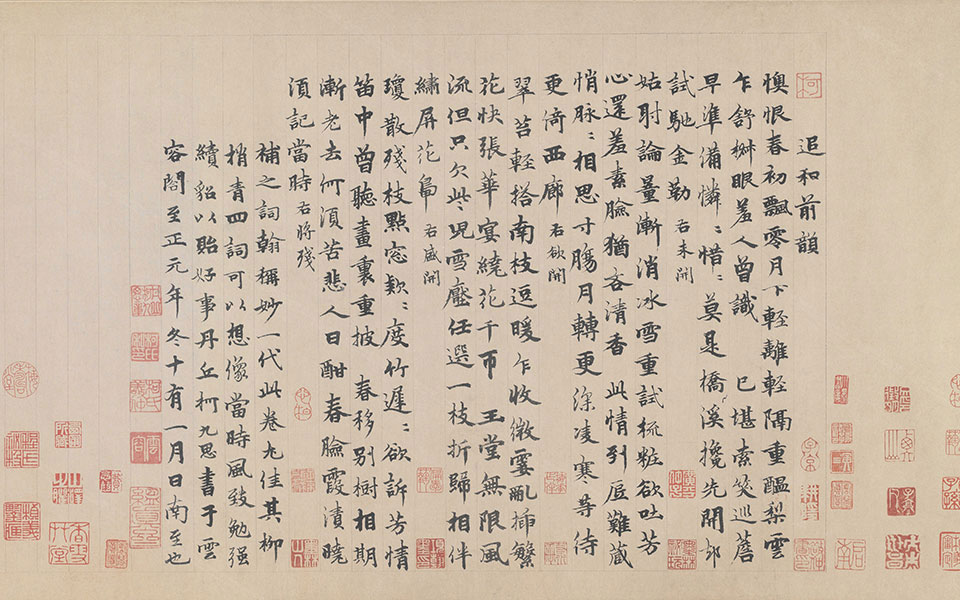 追和前韻
懊恨春初飄零月下輕離輕隔重醖梨雲
乍舒椒眼羞人曾識 已堪索笑巡簷
早準備憐〻惜〻莫是橋溪攙先開却
試馳金勒 右未開
姑射論量漸消冰雪重試梳粧欲吐芳
心還羞素臉猶吝清香 此情到底難藏
悄脉〻相思寸腸月轉更深凌寒等待
更倚西廊 右欲開
翠苔輕搭南枝逗暖乍收微霎亂插繁
花快張華宴繞花千帀 玉堂無限風
流但只欠些兒雪壓任選一枝折歸相伴
繡屏花 右盛開
瓊散殘枝點窓款〻度竹遲〻欲訴芳情
笛中曾聽畫裏重披 春移別樹相期
漸老去何須苦悲人日酣春臉霞漬曉
須記當時 右將殘
補之詞翰稱妙一代此卷尤佳其柳
梢青四詞可以想像當時風致勉强
續貂以貽好事丹丘柯九思書于雲
容閣至正元年冬十有一月日南至也